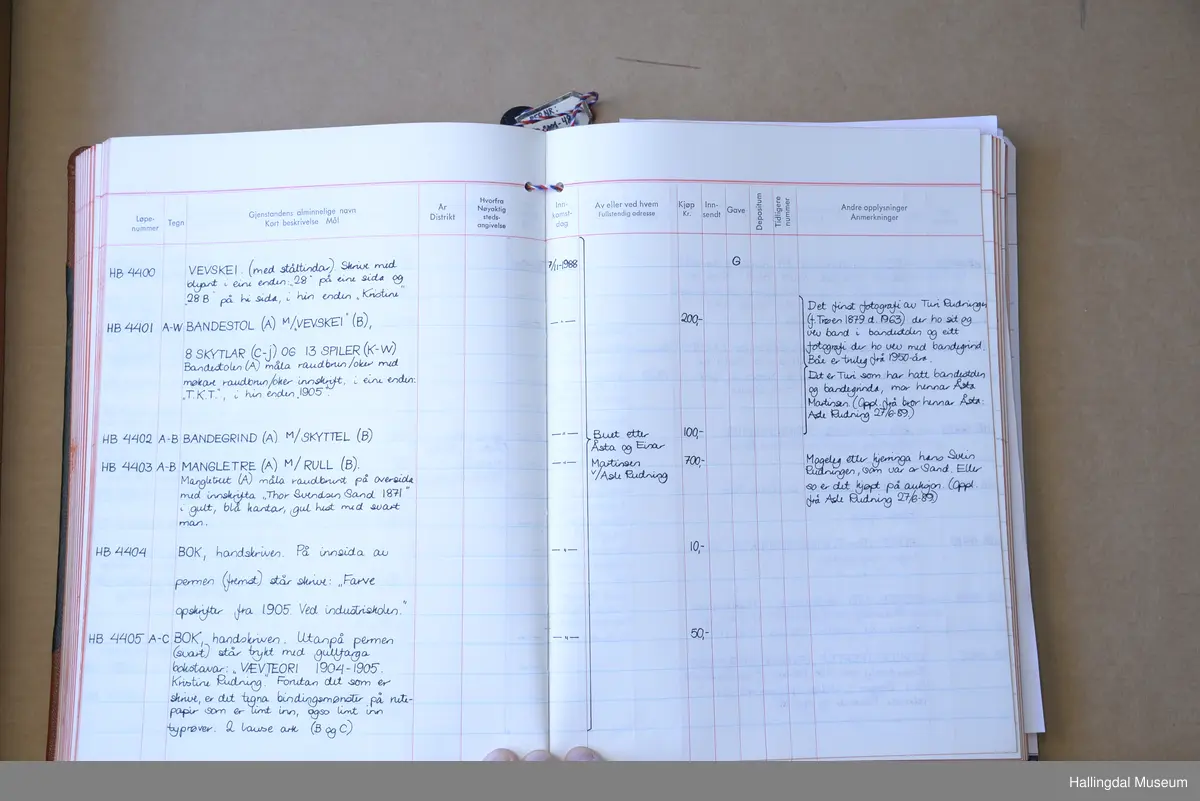 Løpe-
nummer
Tegn
Gjenstandens alminnelige navn
Kort beskrivelse Mål
År
Distrikt
Hvorfra
Nøyaktig
steds-
angivelse
Inn-
komst-
dag
Av eller ved hvem
Fullstendig adresse
Kjøp
Kr.
Inn-
sendt
Gave
Depositum
Tidligere
nummer
Andre opplysninger
Anmerkninger
HB 4400 VEVSKEI. (med ståltindar) Skrive med
blyant i eine enden „28" på eine sida og
„28 B" på hi sida, i hin enden „Kristine"
7/11-1988
G
HB 4401 A-W BANDESTOL (A) M/„VEVSKEI" (B),
8 SKYTLAR (C-j) OG 13 SPILER (K-W)
Bandestolen (A) måla raudbrun/oker med
mørkare raudbrun/oker innskrift, i eine enden:
„T.K.T.", i hin enden „1905".
— " —
200,-
Det finst fotografi av Turi Rudningen
(f. Trøen 1879 d. 1963) der ho sit og
vev band i bandestolen og eitt
fotografi der ho vev med bandegrind.
Båe er truleg frå 1950-åra.
Det er Turi som har hatt bandestolen
og bandegrinda, mor hennar Åsta
Martinsen (Oppl. frå bror hennar Åsta:
Asle Rudning 27/6-89)
HB 4402 A-B BANDEGRIND (A) M/SKYTTEL (B)
— " —
Buet etter
Åsta og Einar
Martinsen
v/Asle Rudning
100,-
HB 4403 A-B MANGLETRE (A) M/RULL (B).
Mangletreet (A) måla raudbrunt på oversida
med innskrifta „Thor Svendsen Sand 1871"
i gult, blå kantar, gul hest med svart
man.
— " —
700,-
Mogeleg etter kjerringa hans Svein
Rudningen, som var or Sand. Eller
so er det kjøpt på auksjon. (Oppl.
frå Asle Rudning 27/6-89)
HB 4404 BOK, handskriven. På innsida av
permen (fremst) står skrive: „Farve
opskrifter fra 1905 Ved industriskolen."
— " —
10,-
HB 4405 A-C BOK, handskriven. Utanpå permen
(svart) står trykt med gullfarga
bokstavar: „VÆVTEORI 1904-1905.
Kristine Rudning." Forutan det som er
skrive, er det tegna bindingsmønster på rute-
papir som er limt inn, også limt inn
typrøver. 2 lause ark (B og C)
— " —
50,-
Hallingdal Museum